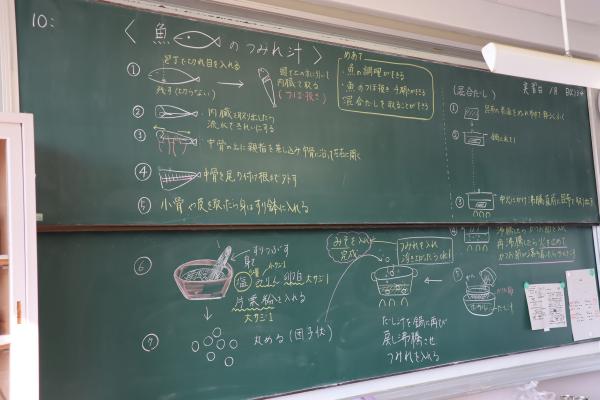 10:
〈魚のつみれ汁〉
めあて
・魚の調理ができる
・魚のつぼ抜き 手開きができる
・混合だしを取ることができる
① 包丁で切れ目を入れる
残す(とらない)
内臓を取る
(つぼ抜き)
② ・内臓を取り出したら
流水できれいにする
③ ・中骨の上に親指を差し込み中骨に沿って左右に開く
④ 中骨を尾の付け根まではずす
⑤ 小骨や皮を取ったら身はすり鉢に入れる
⑥ すりつぶす
塩 みりん 卵白 大サジ1
片栗粉を入れる
大サジ1
⑦ 丸める(団子状)
みそを入れ
完成
つみれを入れ
だし汁を鍋に再び
戻し沸騰させ
つみれを入れる
(混合だし)
実習日
①
②
③ 中火にかけ沸騰直前に昆布を取り出す
④
再沸騰したら火を止めて